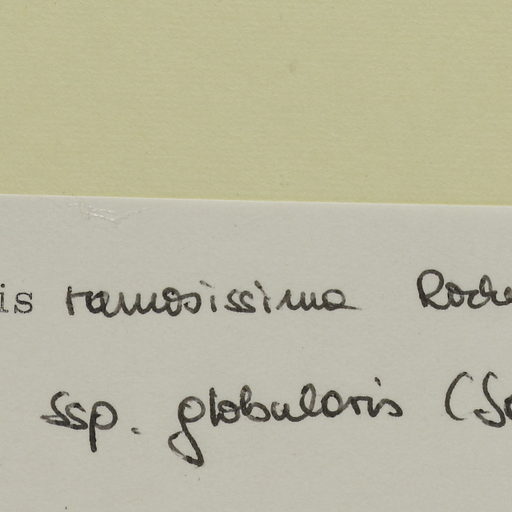 is ramosissima Roche
ssp. globularis (So